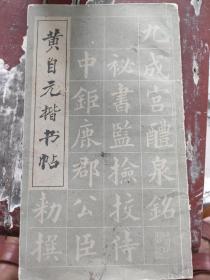 黄自元楷书帖
九成宮醴泉銘
祕書監撿挍侍
中鉅鹿郡公臣
勅撰